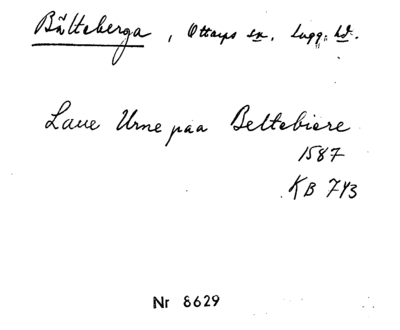 Bälteberga, Ottarps sn. Lugg. hd.
Laue Urne paa Beltebiere
1587
KB 743
Nr 8629